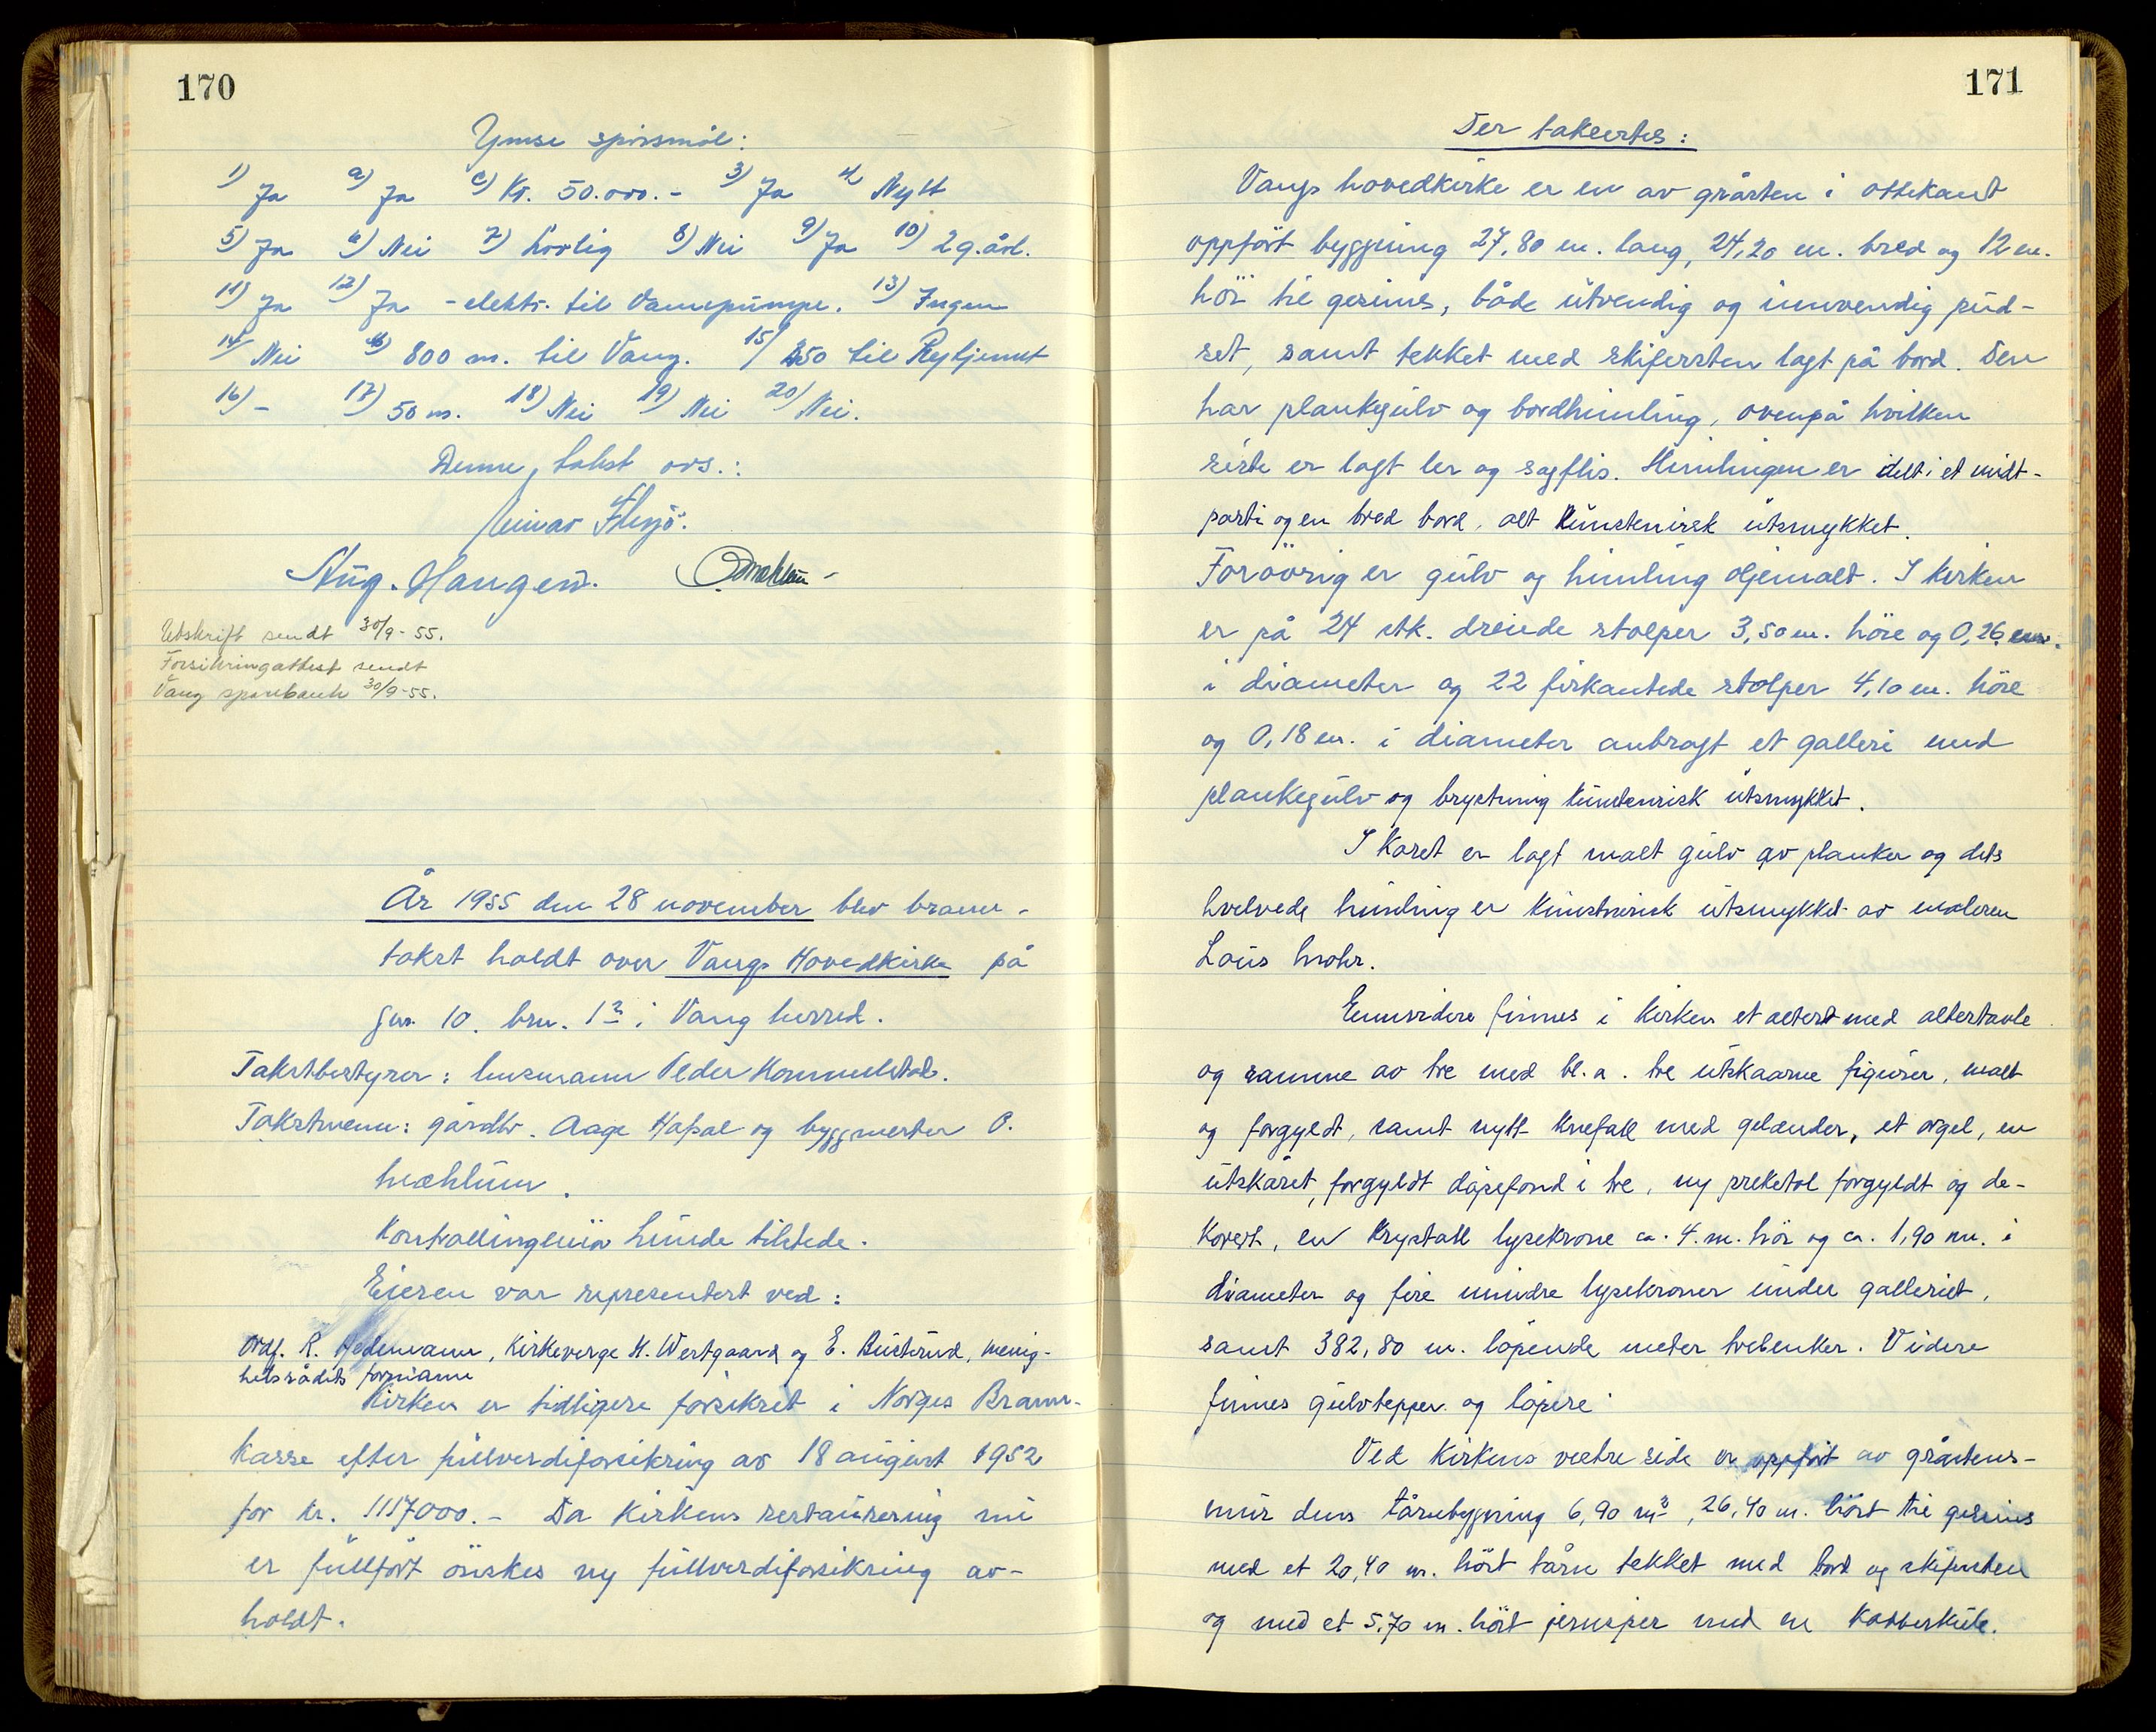 170
Ymse spörsmål:
1) Ja a) Ja c) Kr. 50.000.- 3) Ja 4) Nytt
5) Ja 6) Nei 7) Lovlig 8) Nei 9) Ja 10) 2 g. årl.
11) Ja 12) Ja - elektr. til Vannpumpe. 13) Ingen
14) Nei 800 m. til Vang. 15) 250 til
16) - 17) 50 m. 18) Nei 19) Nei 20) Nei.
Denne takst avs.:
Aug. Haugen. O. Mæhlum
Utskrift sendt 30/9-55.
Forsikringattest sendt
Vang sparebank 30/9-55.
År 1955 den 28 november blev brann-
takst holdt over Vangs Hovedkirke på
gnr. 10. brn. 12 i Vang herred.
Takstbestyrer: lensmann Peder Kommelstad.
Takstmenn: gårdbr. Aage Hafsal og byggmester O.
Mæhlum.
Kontrollingeniör Lunde tilstede.
Eieren var representert ved:
Ordf. R. Hedemann, Kirkeverge H. Westgaard og E. Bustrud, menig-
hetsrådets formann
Kirken er tidligere forsikret i Norges Brann-
kasse efter fullverdiforsikring av 18 august 1952
for kr. 1117000.- Da Kirkens restaurering nu
er fullfört önskes ny fullverdiforsikring av-
holdt.
171
Der taksertes:
Vangs hovedkirke er en av gråsten i ottekant
oppfört byggning 27,80 m. lang, 24,20 m. bred og 12 m.
höi til gesims, både utvendig og innvendig pud-
set, samt tekket med skifersten lagt på bord. Den
har plankegulv og bordhimling, ovenpå hvilken
siste er lagt ler og sagflis. Himlingen er delt i et midt-
parti og en bred bord, alt kunstnerisk utsmykket.
Forövrig er gulv og himling oljemalt. I kirken
er på 24 stk. dreiede stolper 3,50 m. höie og 0,26 m.
i diameter og 22 firkantede stolper 4,10 m. höie
og 0,18 m. i diameter anbragt et galleri med
plankegulv og brystning kunstnerisk utsmykket.
I Koret er lagt malt gulv av planker og dets
hvelvede himling er kunstnerisk utsmykket av maleren
Louis Mohr.
Ennvidere finnes i kirken et alter med altertavle
og ramme av tre med bl. a. tre utskaarne figurer, malt
og forgyldt, samt nytt knefall med gelender, et orgel, en
utskåret, forgyldt döpefond i tre, ny preketol forgyldt og de-
korert, en Krystall lysekrone ca. 4. m. höi og ca. 1,90 m. i
diameter og fire mindre lysekroner under galleriet,
samt 382,80 m. löpende meter trebenker. Videre
finnes gulvtepper og löpere.
Ved Kirkens vestre side er oppfört av gråstens-
mur dens tårnbygning 6,90 m2, 26,40 m. höit til gesims
med et 20,40 m. höit tårn tekket med bord og skifersten
og med et 5,70 m. höit jernspir med en kobberkule.